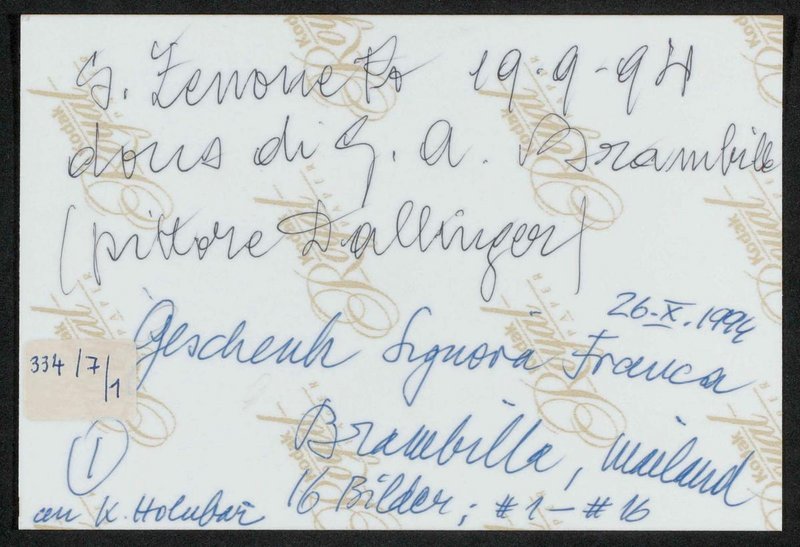 S. Zenone Po 19-9-94
dono di G. A. Brambilla
(pittore Dallinger)
26.X.1994
Geschenk Signora Franca
334/7/1
Brambilla, Mailand
1
16 Bilder; #1 – #16
an K. Holubar